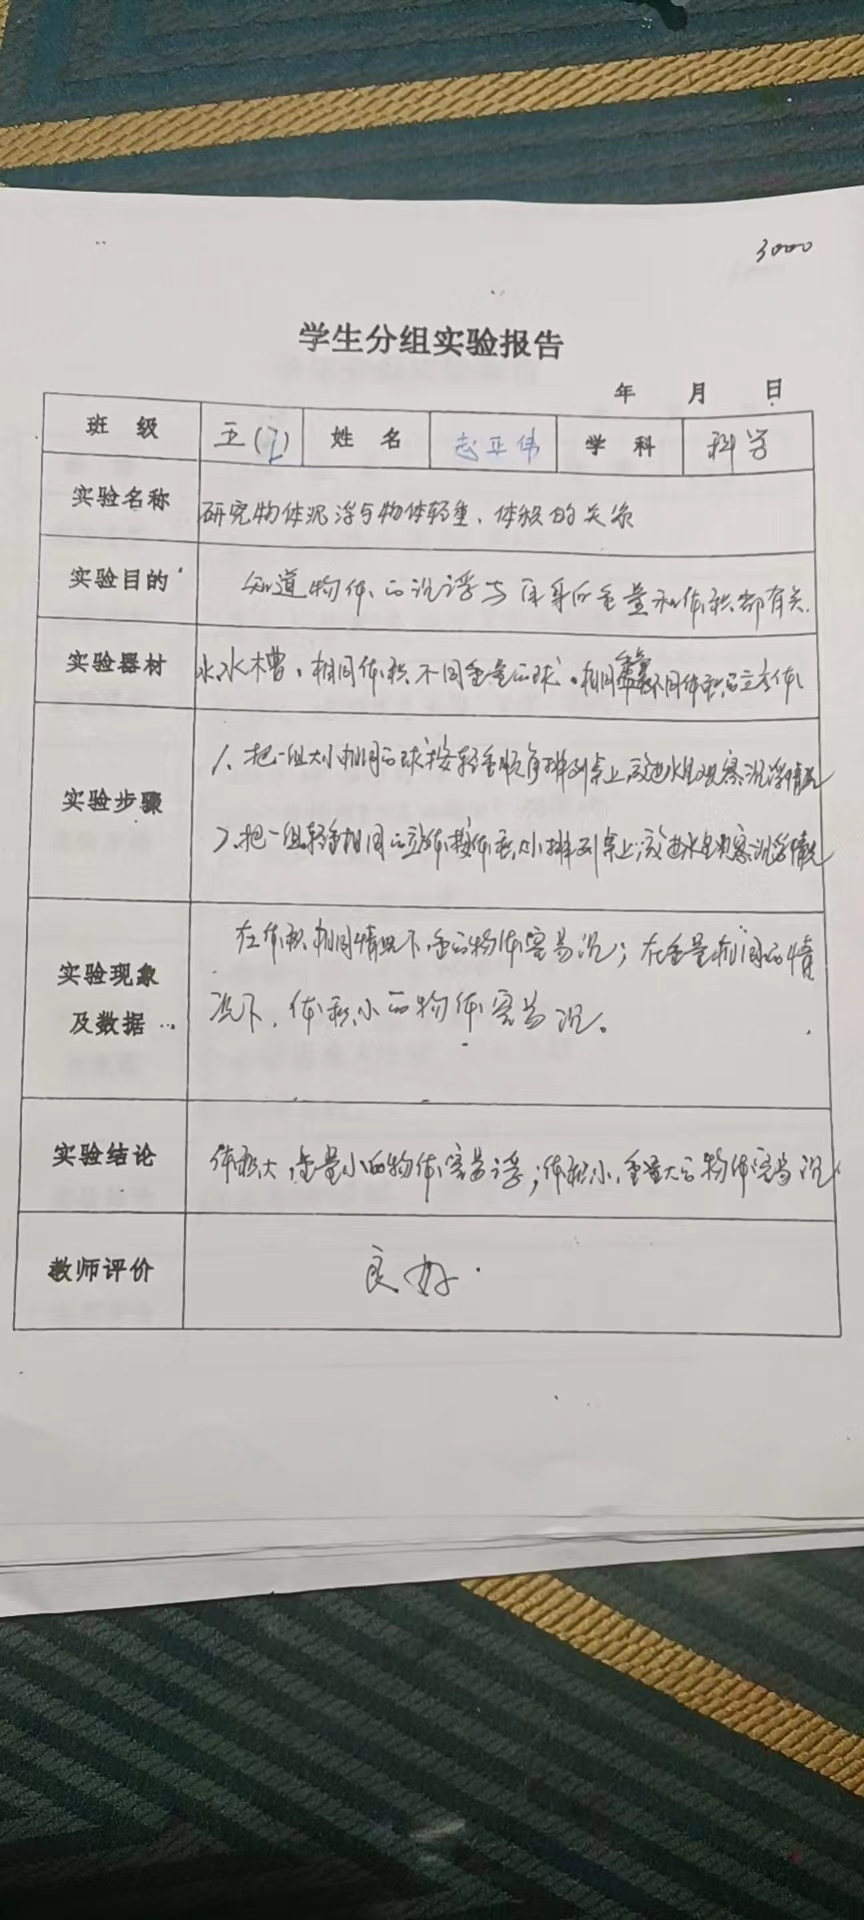 3000
学生分组实验报告
年 月 日
班 级 五( ) 姓 名 赵亚伟 学 科 科学
实验名称 研究物体沉浮与物体轻重、体积的关系
实验目的 知道物体的沉浮与自身的重量和体积都有关.
实验器材 水,水槽,相同体积不同重量的球,相同重量不同体积的立方体
实验步骤 1、把一组大小相同的球按轻重顺序排列桌上,放进水里观察沉浮情况
2、把一组轻重相同的立方体按体积大小排列桌上,放进水里观察沉浮情况
实验现象及数据 在体积相同情况下,重的物体容易沉;在重量相同的情
况下,体积小的物体容易沉。
实验结论 体积大,重量小的物体容易浮;体积小,重量大的物体容易沉
教师评价 良好.